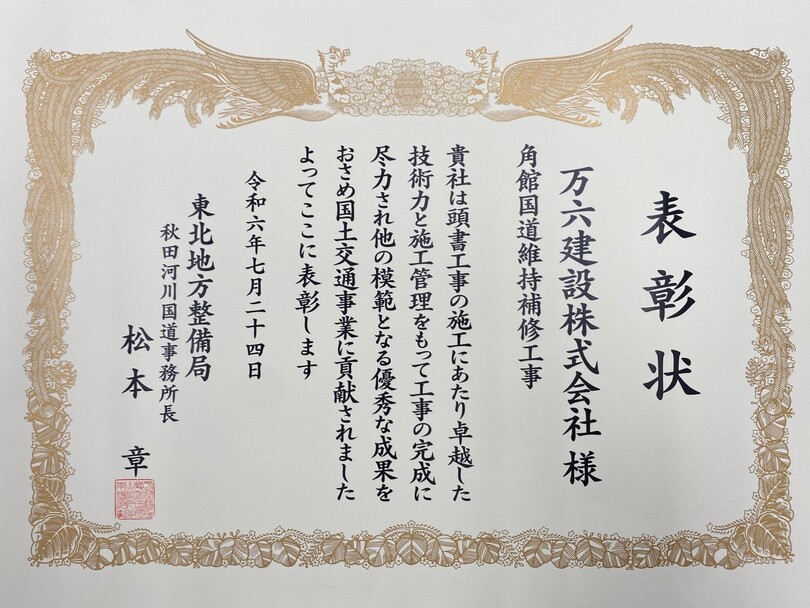 表彰状
万六建設株式会社様
角館国道維持補修工事
貴社は頭書工事の施工にあたり卓越した
技術力と施工管理をもって工事の完成に
尽力され他の模範となる優秀な成果を
おさめ国土交通事業に貢献されました
よってここに表彰します
令和六年七月二十四日
東北地方整備局
秋田河川国道事務所長
松本 章